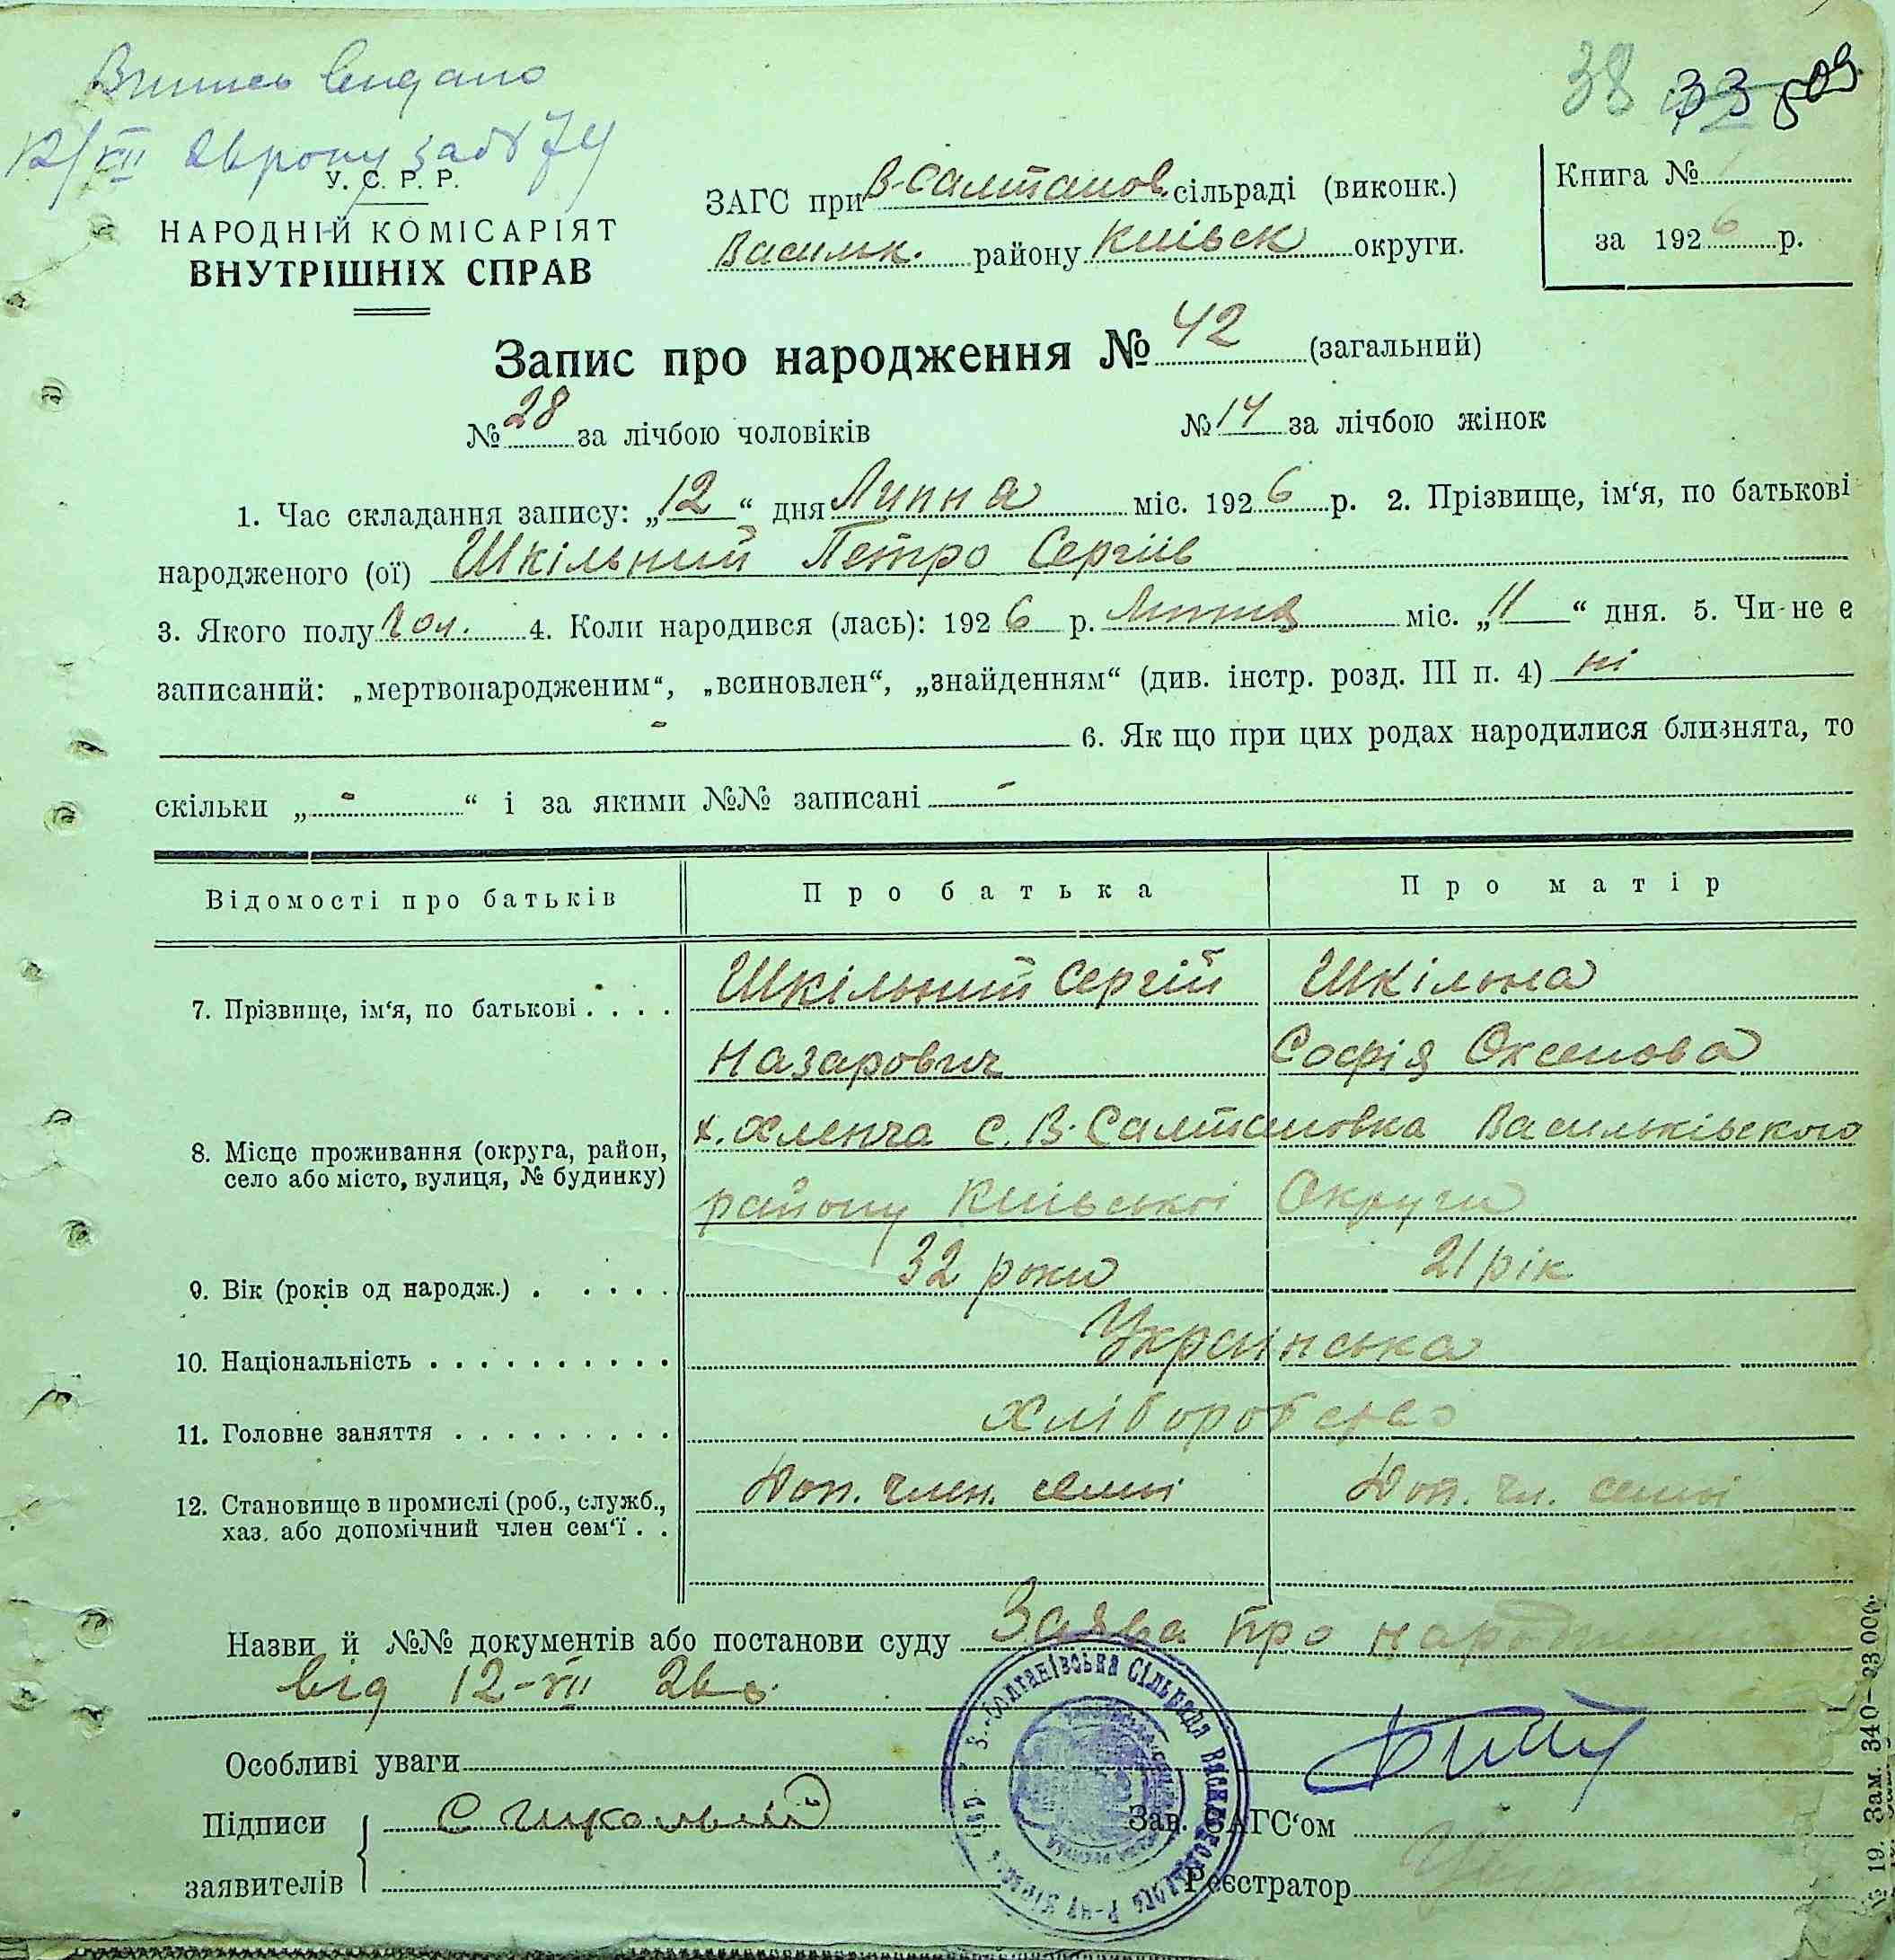 Випись видано
12/VII 26 року за № 74
38 33 509
У. С. Р. Р.
НАРОДНІЙ КОМІСАРІЯТ
ВНУТРІШНІХ СПРАВ
ЗАГС при В-Салтанов. сільраді (виконк.)
Васильк. району Київськ округи.
Книга №
за 1926 р.
Запис про народження № 42 (загальний)
№ 28 за лічбою чоловіків № 14 за лічбою жінок
1. Час складання запису: „12“ дня Липня міс. 1926 р. 2. Прізвище, ім‘я, по батькові
народженого (ої) Шкільний Петро Сергіїв
3. Якого полу чол. 4. Коли народився (лась): 1926 р. Липня міс. „11“ дня. 5. Чи-не є
записаний: „мертвонародженим“, „всиновлен“, „знайденням“ (див. інстр. розд. III п. 4) ні
- 6. Як що при цих родах народилися близнята, то
скільки „-“ і за якими №№ записані -
Відомості про батьків Про батька Про матір
7. Прізвище, ім‘я, по батькові . . . . Шкільний Сергій Шкільна
Назарович Софія Оксенова
8. Місце проживання (округа, район, село або місто, вулиця, № будинку) х. Хленча с. В. Салтановка Васильківського
району Київської Округи
9. Вік (років од народж.) . . . . . 32 роки 21 рік
10. Національність . . . . . . . . . . Українська
11. Головне заняття . . . . . . . . . Хлібороб
12. Становище в промислі (роб., служб., хаз. або допомічний член сем‘ї . . Доп. член. семьі Доп. чл. семьі
Назви й №№ документів або постанови суду Заява про народження
від 12-VII 26 р.
Особливі уваги
Підписи С Школьний
заявителів
Зав. ЗАГС‘ом
Реєстратор
В.-Солтанівська Сільрада Васильківського Р-ну
19. Зам. 340—23.000.